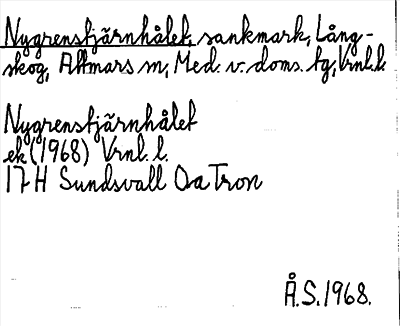 Nygrenstjärnhålet, sankmark, Lång-
skog, Attmars sn, Med. v. doms. tg, Vrnl.l.
Nygrenstjärnhålet
ek (1968) Vrnl. l.
17 H Sundsvall Oa Tron
Å.S. 1968.